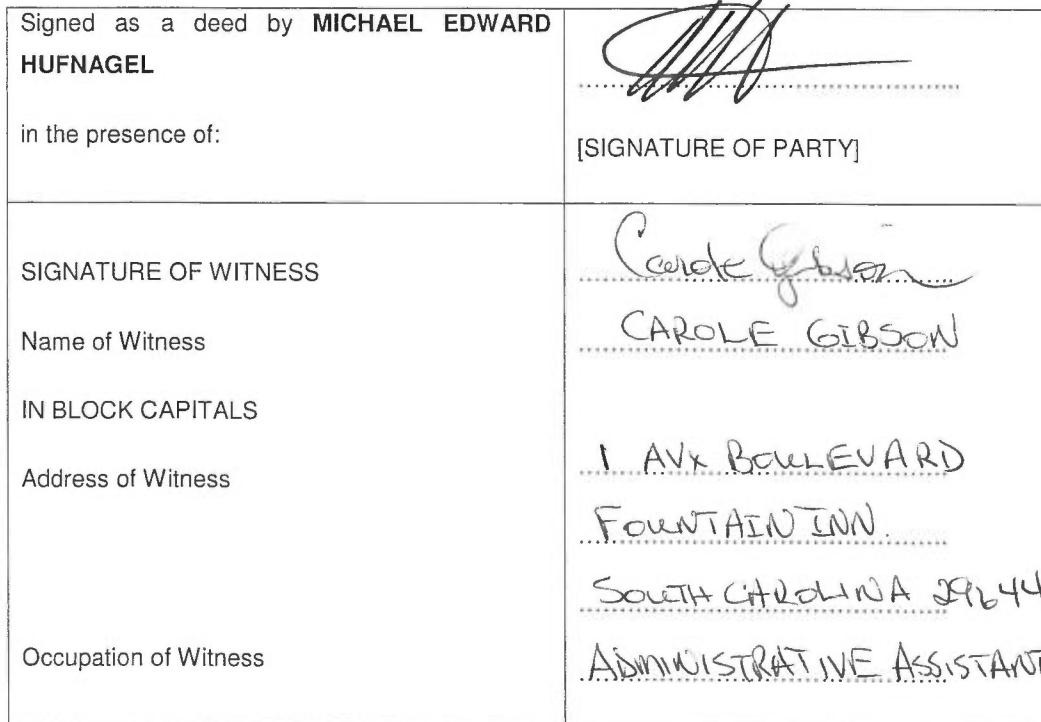 Signed as a deed by MICHAEL EDWARD
HUFNAGEL
in the presence of:
[SIGNATURE OF PARTY]
SIGNATURE OF WITNESS
Carole Gibson
Name of Witness
CAROLE GIBSON
IN BLOCK CAPITALS
Address of Witness
1 AVX BOULEVARD
FOUNTAIN INN.
SOUTH CAROLINA 29644
Occupation of Witness
ADMINISTRATIVE ASSISTANT